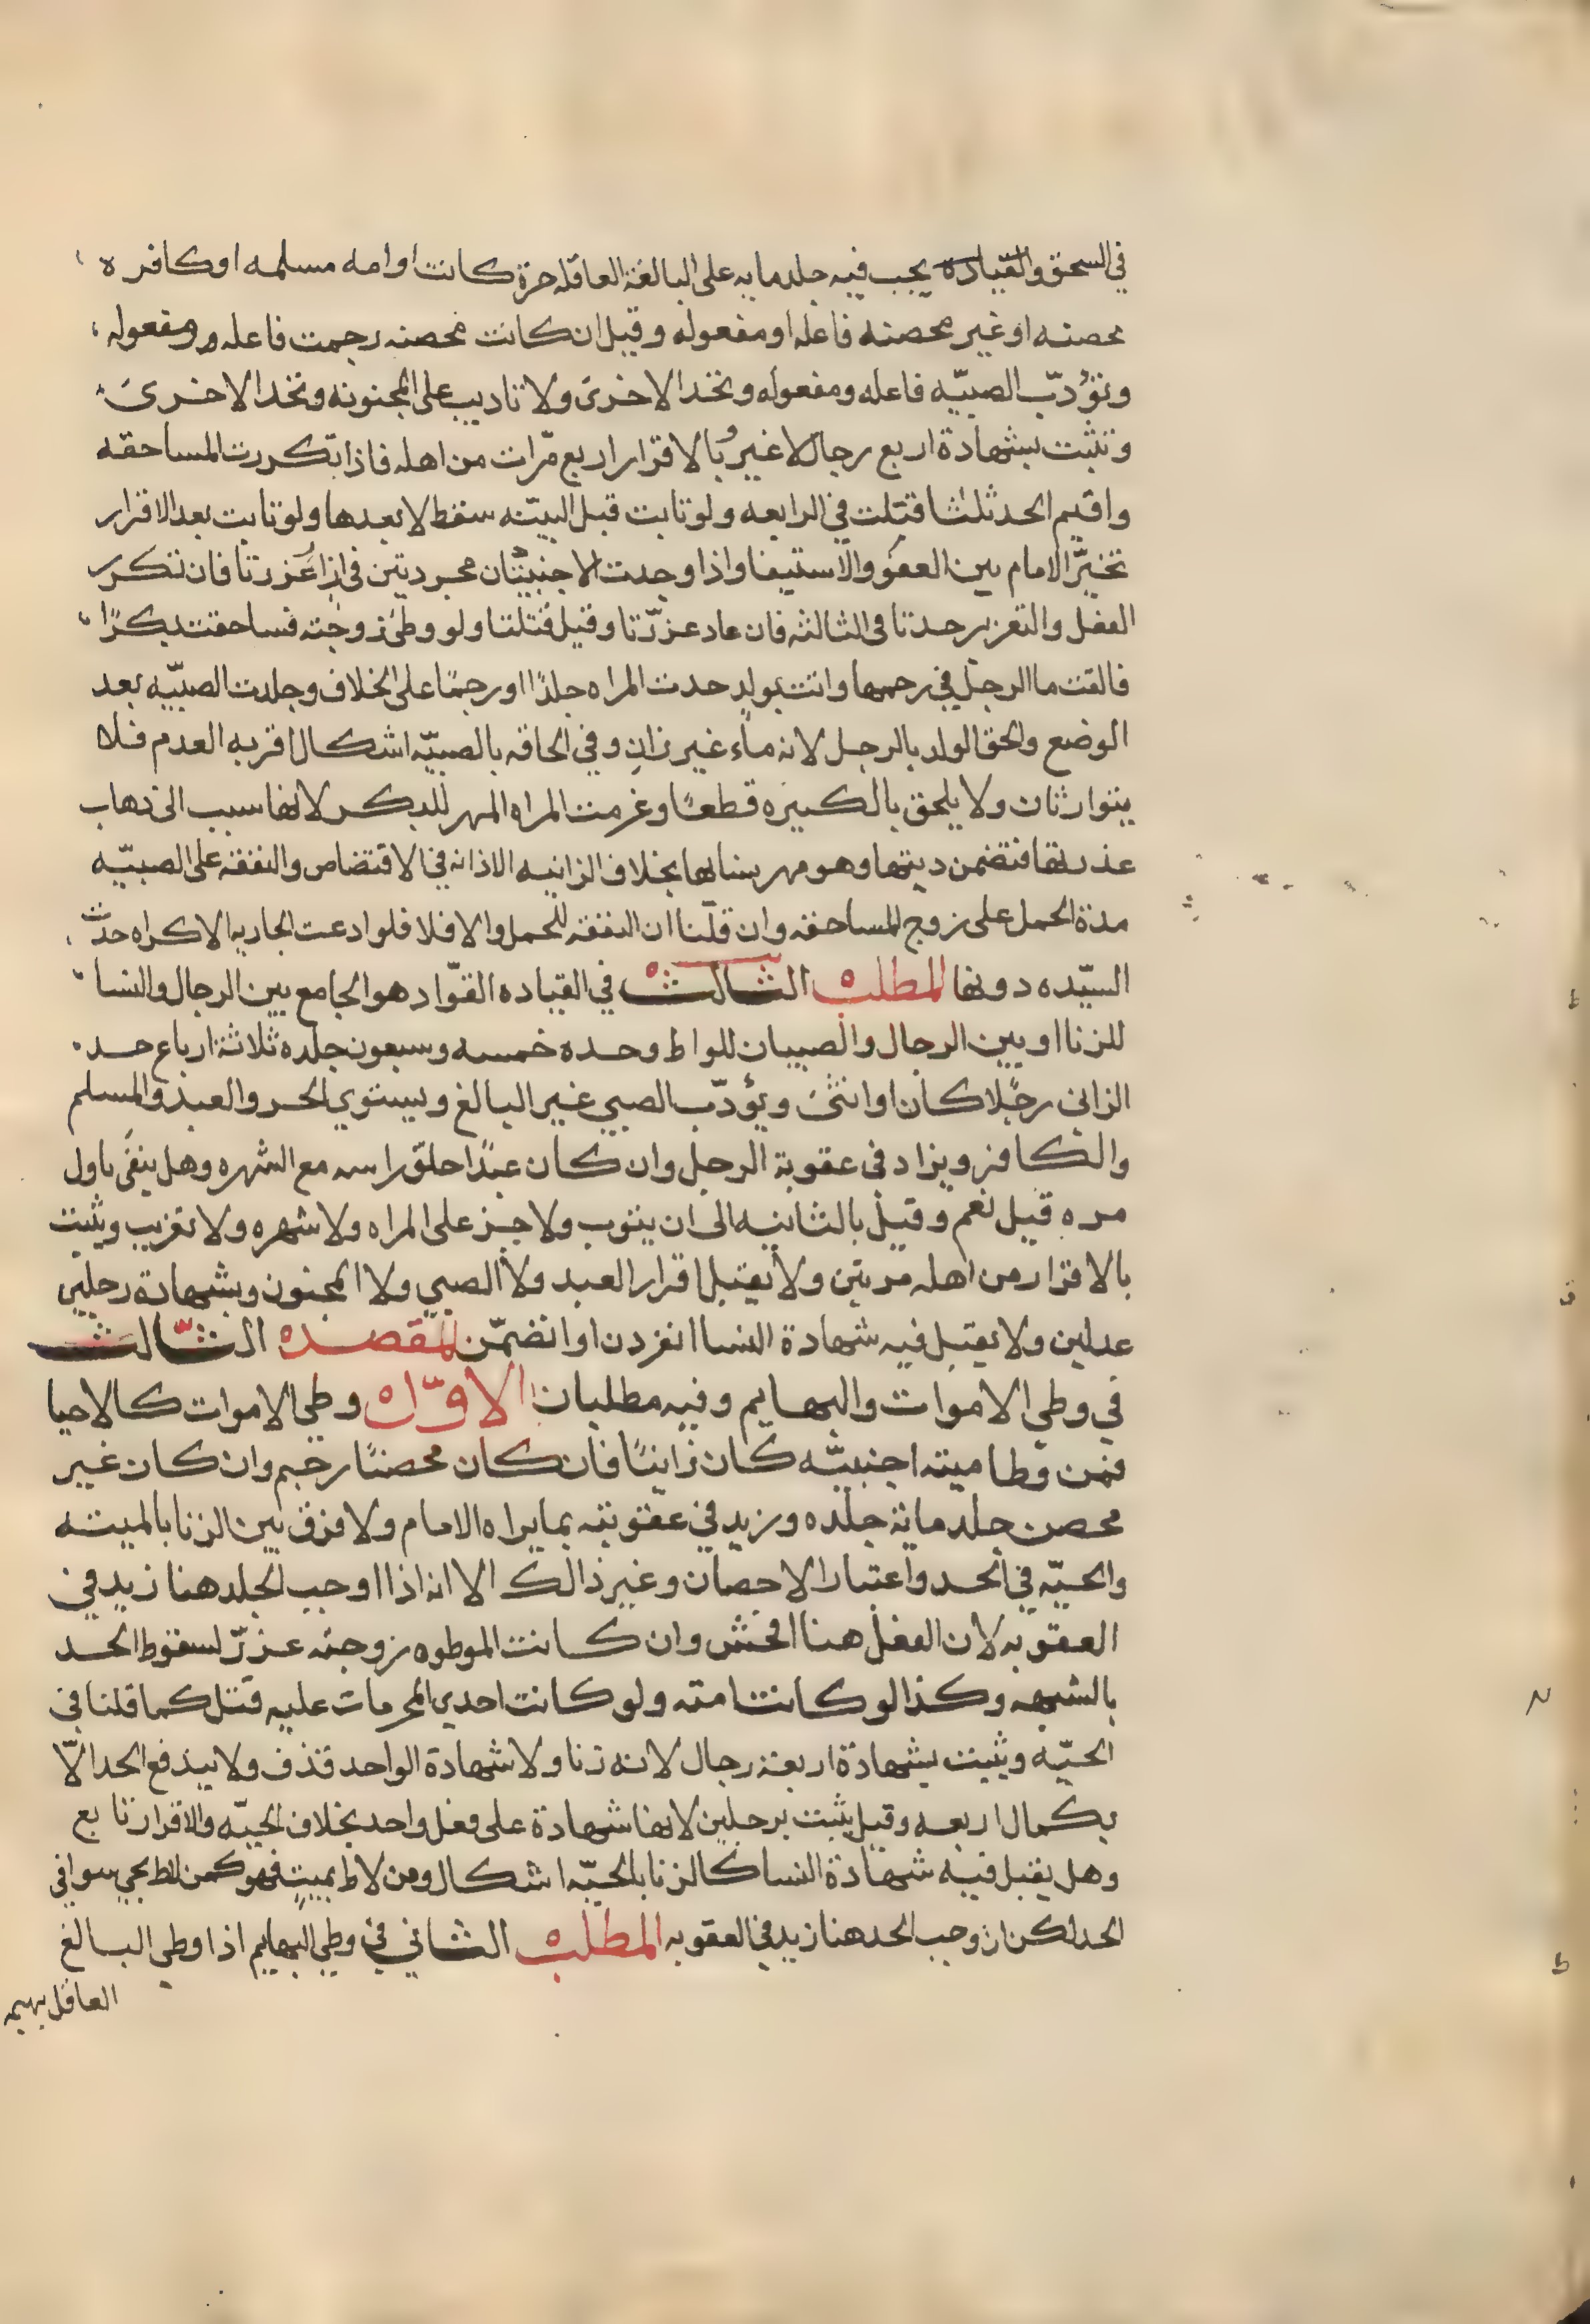 في السحق والقياده يجب فيه جلد مايه على البالغة العاقله حرة كانت او امه مسلمه او كافره
محصنه او غير محصنه فاعله او مفعوله وقيل ان كانت محصنه رجمت فاعله ومفعوله
وتؤدّب الصبيّه فاعله ومفعوله وتحد الاخرى ولا تاديب على المجنونه وتحد الاخرى
وتثبت بشهادة اربع رجال لا غير وبالاقرار اربع مرّات من اهله فاذا تكررت المساحقه
واقيم الحد ثلثا قتلت في الرابعه ولو تابت قبل البيّنه سقط لا بعدها ولو تابت بعد الاقرار
تخيّر الامام بين العفو والاستيفا واذا وجدت الاجنبيّتان مجردتين في ازار عزرتا فان تكرر
الفعل والتعزير حدتا في الثالثه فان عاد عزّرتا وقيل قتلتا ولو وطئ زوجته فساحقت بكرًا
فالقت ما الرجل في رحمها واتت بولدٍ حدت المراه جلدًا او رجمًا على الخلاف وجلدت الصبيّه بعد
الوضع والحق الولد بالرجل لانه ماء غير زانٍ وفي الحاقه بالصبيّه اشكال اقربه العدم فلا
يتوارثان ولا يلحق بالكبيره قطعًا وغرمت المراه المهر للبكر لانها سبب الى ذهاب
عذرتها فتضمن ديتها وهو مهر نسايها بخلاف الزانيه الاذانه في الاقتضاض والنفقه على الصبيّه
مدة الحمل على زوج المساحقه وان قلنا ان النفقه للحمل والا فلا فلو ادعت الجاريه الاكراه حدت
السيّده دونها المطلب الثالث في القياده القوّاد هو الجامع بين الرجال والنسا
للزنا او بين الرجال والصبيان للواط وحده خمسه وسبعون جلده ثلاثة ارباع حد
الزاني رجلا كان او انثى ويؤدّب الصبي غير البالغ ويستوي الحر والعبد والمسلم
والكافر ويزاد في عقوبة الرجل وان كان عبدًا حلق راسه مع الشهره وهل ينفى باول
مره قيل نعم وقيل بالثانيه الى ان يتوب ولا جز على المراه ولا شهره ولا تغريب ويثبت
بالاقرار من اهله مرتين ولا يقبل اقرار العبد ولا الصبي ولا المجنون وبشهادة رجلين
عدلين ولا يقبل فيه شهادة النسا انفردن او انضمّن المقصد الثالث
في وطي الاموات والبهايم وفيه مطلبان الاوّل وطي الاموات كالاحيا
فمن وطا ميته اجنبيّه كان زانيًا فان كان محصنًا رجم وان كان غير
محصن جلد ماية جلده وزيد في عقوبته بما يراه الامام ولا فرق بين الزنا بالميته
والحيّه في الحد واعتبار الاحصان وغير ذالك الا انه اذا اوجب الجلد هنا زيد في
العقوبه لان الفعل هنا افحش وان كانت الموطوه زوجته عزرّ لسقوط الحد
بالشبهه وكذا لو كانت امته ولو كانت احدي المحرمات عليه قتل كما قلنا في
الحيّه ويثبت بشهادة اربعة رجال لانه زنا ولا شهادة الواحد قذف ولا يندفع الحد الّا
بكمال اربعه وقيل يثبت برجلين لانها شهادة على فعل واحد بخلاف الحيّه والاقرار تابع
وهل يقبل فيه شهادة النسا كالزنا بالحيّه اشكال ومن لاط بميتٍ فهو كمن لاط بحي سوا في
الحد لكن ان وجب الحد هنا زيد في العقوبه المطلب الثاني في وطي البهايم اذا وطي البالغ
العاقل بهيمه